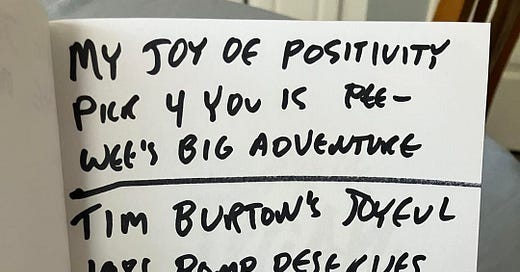 MY JOY OF POSITIVITY
PICK 4 YOU IS PEE-
WEE'S BIG ADVENTURE
TIM BURTON'S JOYFUL
1985 ROMP DESERVES